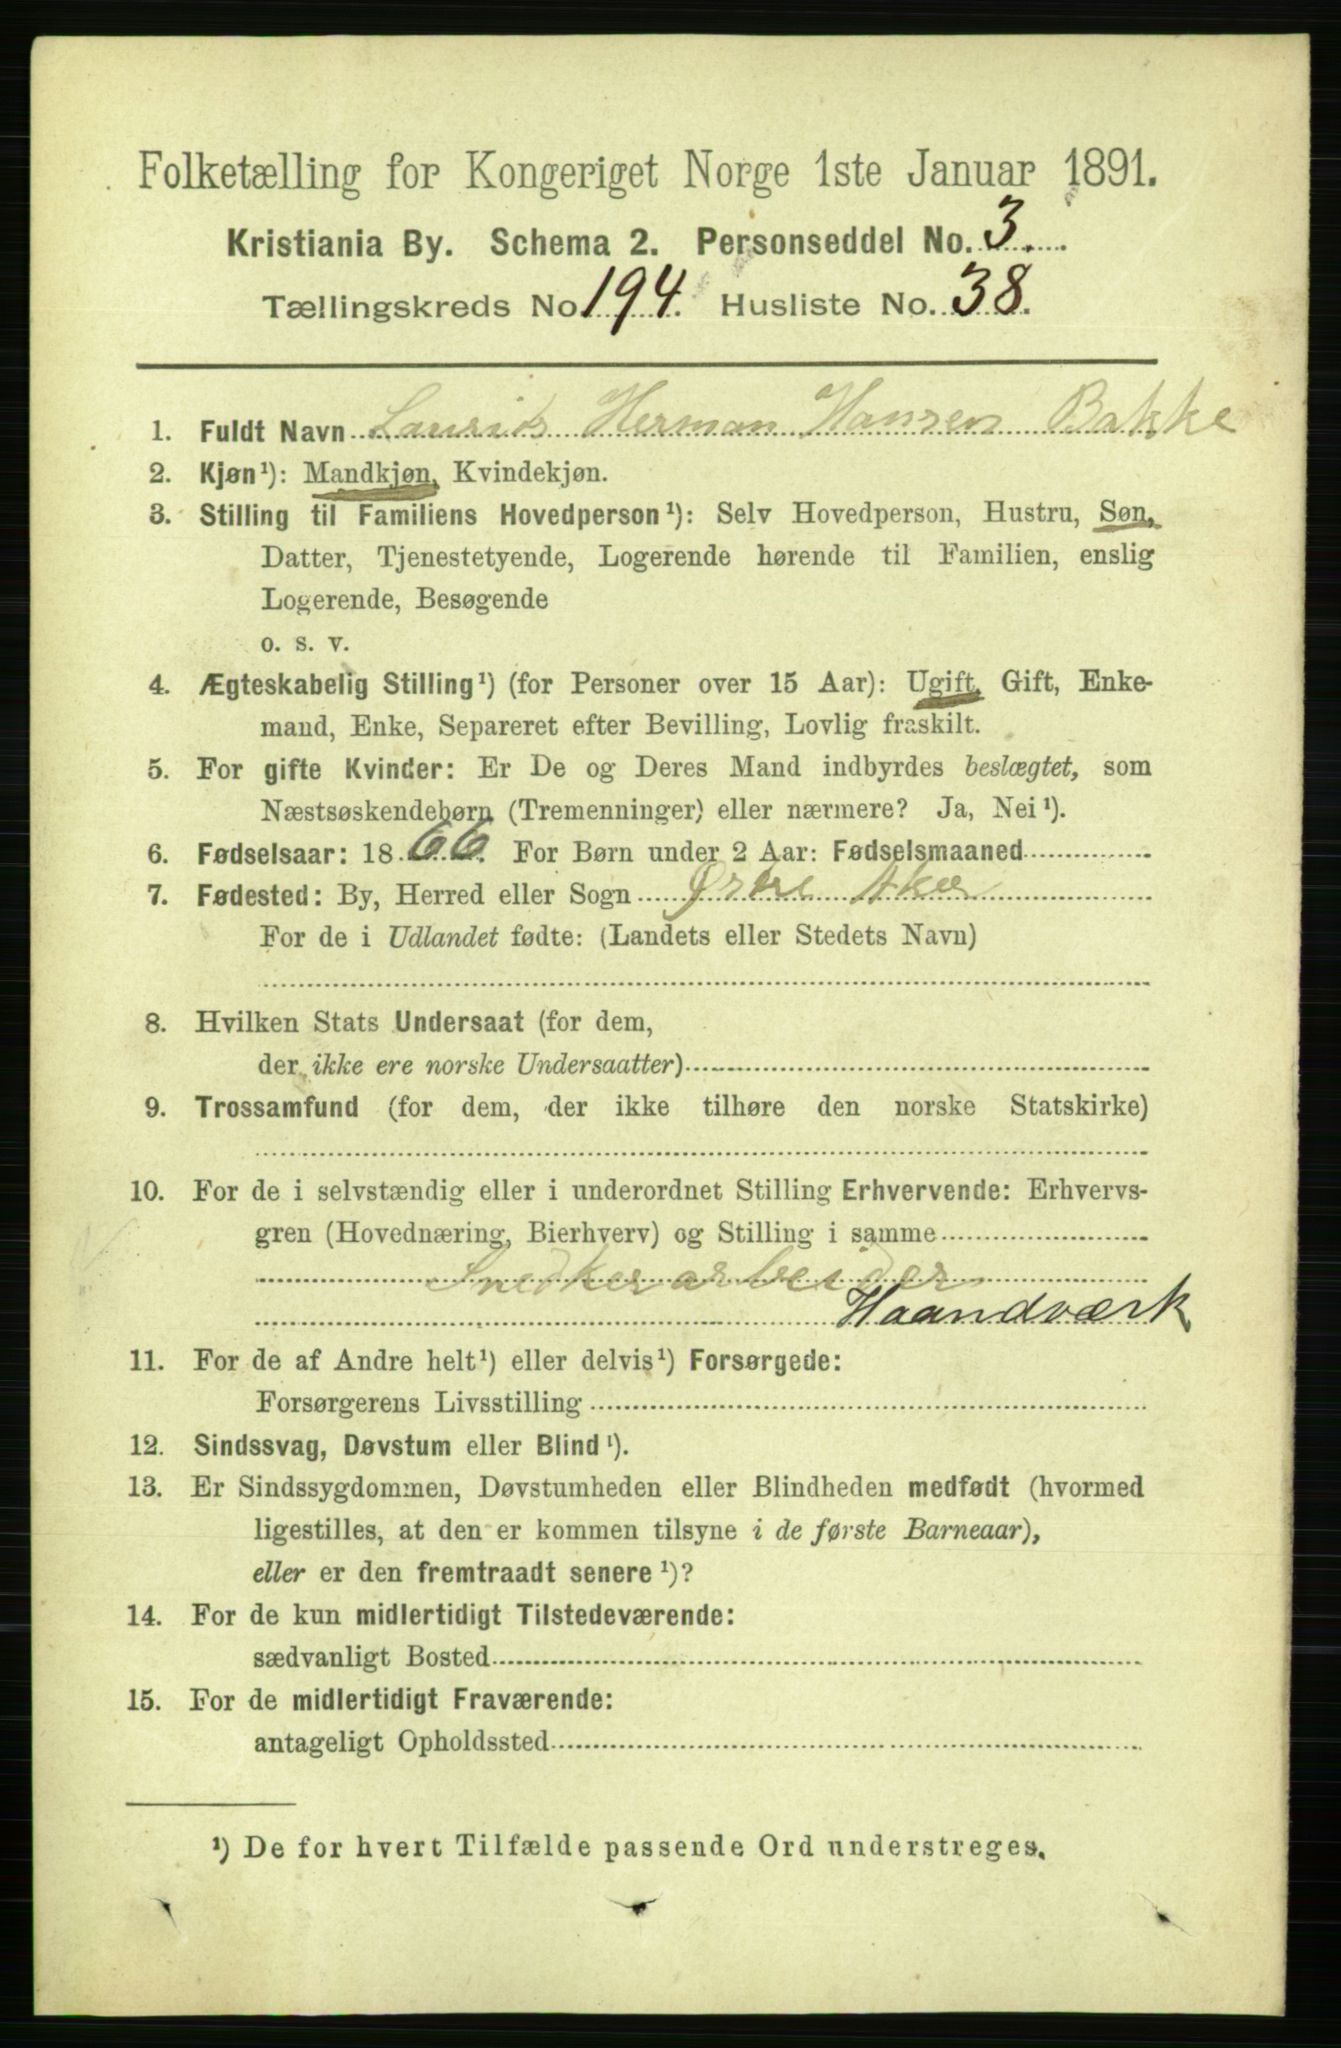 Folketælling for Kongeriget Norge 1ste Januar 1891.
Kristiania By. Schema 2. Personseddel No. 3.
Tællingskreds No 194. Husliste No. 38.
1. Fuldt Navn Laurits Herman Hansen Bakke
2. Kjøn¹): Mandkjøn, Kvindekjøn.
3. Stilling til Familiens Hovedperson¹): Selv Hovedperson, Hustru, Søn,
Datter, Tjenestetyende, Logerende hørende til Familien, enslig
Logerende, Besøgende
o. s. v.
4. Ægteskabelig Stilling¹) (for Personer over 15 Aar): Ugift, Gift, Enke-
mand, Enke, Separeret efter Bevilling, Lovlig fraskilt.
5. For gifte Kvinder: Er De og Deres Mand indbyrdes beslægtet, som
Næstsøskendebørn (Tremenninger) eller nærmere? Ja, Nei¹).
6. Fødselsaar: 1866. For Børn under 2 Aar: Fødselsmaaned
7. Fødested: By, Herred eller Sogn Østre Aker
For de i Udlandet fødte: (Landets eller Stedets Navn)
8. Hvilken Stats Undersaat (for dem,
der ikke ere norske Undersaatter)
9. Trossamfund (for dem, der ikke tilhøre den norske Statskirke)
10. For de i selvstændig eller i underordnet Stilling Erhvervende: Erhvervs-
gren (Hovednæring, Bierhverv) og Stilling i samme
Snedkerarbeider
Haandværk
11. For de af Andre helt¹) eller delvis¹) Forsørgede:
Forsørgerens Livsstilling
12. Sindssvag, Døvstum eller Blind¹).
13. Er Sindssygdommen, Døvstumheden eller Blindheden medfødt (hvormed
ligestilles, at den er kommen tilsyne i de første Barneaar),
eller er den fremtraadt senere¹)?
14. For de kun midlertidigt Tilstedeværende:
sædvanligt Bosted
15. For de midlertidigt Fraværende:
antageligt Opholdssted
¹) De for hvert Tilfælde passende Ord understreges.